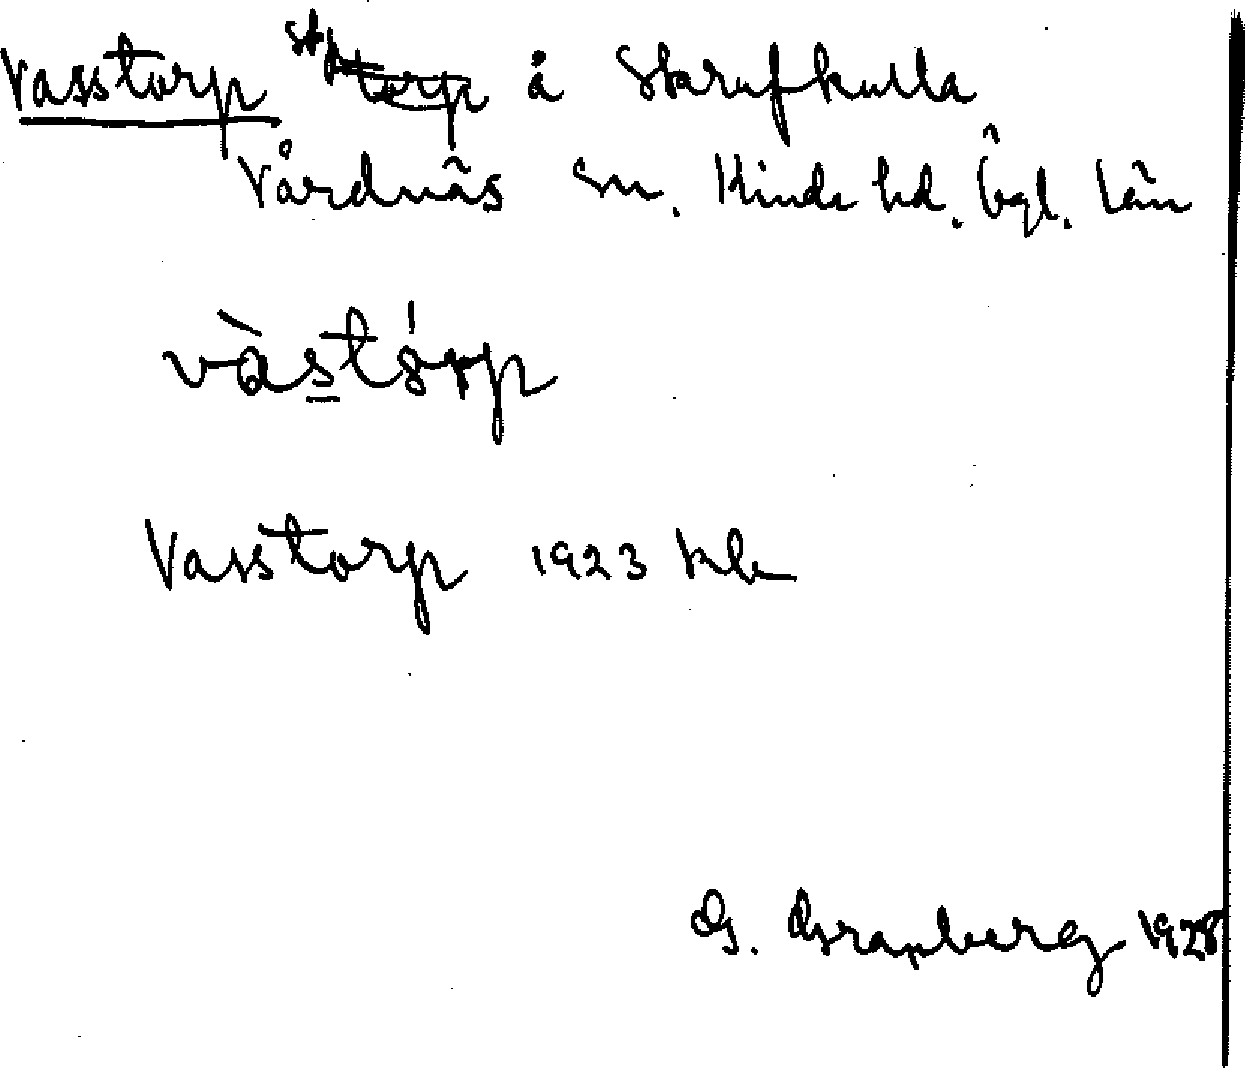 Vasstorp st å Skrufkulla
Vårdnäs sn. Kinds hd. Ögl. län
vàstórp
Vasstorp 1923 kb
G. Granberg 1928